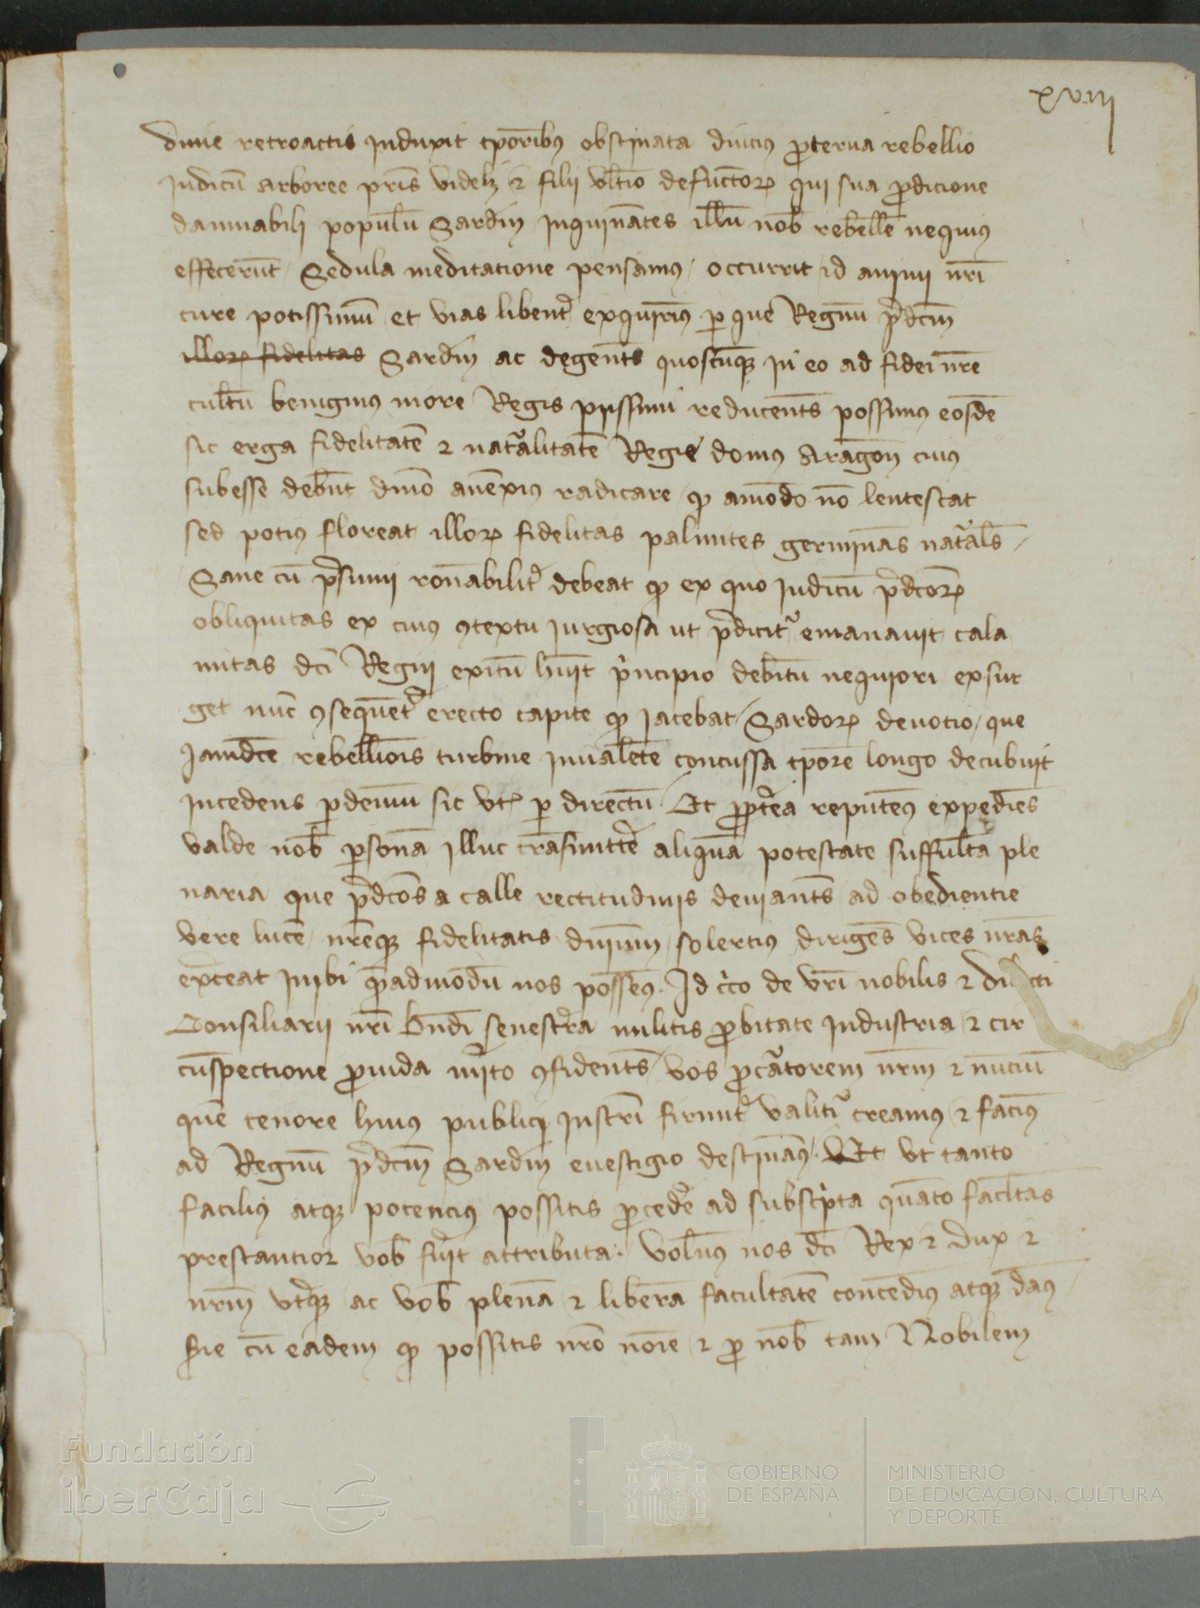 xviii
dinie retroactis induxit tporibus obstinata diucius proterua rebellio
iudicu arboree pris videlz et filii vltio defuctor qui sua prodicione
damnabili populu Sardin inquinates illu nob rebelle nequius
effecerut Sedula meditatione pensamus occurrit id animi nri
cure potissimu et vias libent exquirim per que Regnu pdcm
illor fidelitas Sardin ac degents quoscuq in eo ad fidei nre
cultu benignius more Regis piissimi reducents possimus eosde
sic erga fidelitate et natalitate Regie domus Aragon cuius
subesse debnt dnio anexius radicare q amodo no lentescat
sed potius floreat illor fidelitas palmites germinas natals
Sane cu psumi ronabilit debeat q ex quo iudicu pdcor
obliquitas ex cuius contextu iurgiosa ut pdicit emanauit cala
mitas dci Regni exitu huit principio debitu nequiori exsur
get nuc consequet erecto capite q iacebat Sardor deuotio que
iamdce rebellionis turbine inualete concussa tpore longo decubuit
incedens perdemu sic vt per directu Et proptea reputes expedies
valde nob persona illuc trasmitte aliqua potestate suffulta ple
naria que pdcos a calle rectitudinis deuiants ad obedientie
vere luce nreq fidelitatis diuium solertius diriges vices nras
exceat inibi queadmodu nos posses Id circo de vri nobilis et dilecti
Consiliarii nri bndi senestra militis probitate industria et cir
cuspectione prouida mito confidents vos procatorem nrm et nunciu
que tenore huius publici instri firmit valitur creamus et facim
ad Regnu pdcm Sardin euestigio destinam Et vt tanto
facilius atq potencius possitis procede ad subscpta quato facltas
prestantior vob fuit attributa. Volum nos dci Rex et dux et
nrm vtq ac vob plena et libera facultate concedim atq dam
Sie cu eadem q possitis nro noie et pro nob tam Nobilem
Fundación
iberCaja
GOBIERNO
DE ESPAÑA
MINISTERIO
DE EDUCACIÓN, CULTURA
Y DEPORTE